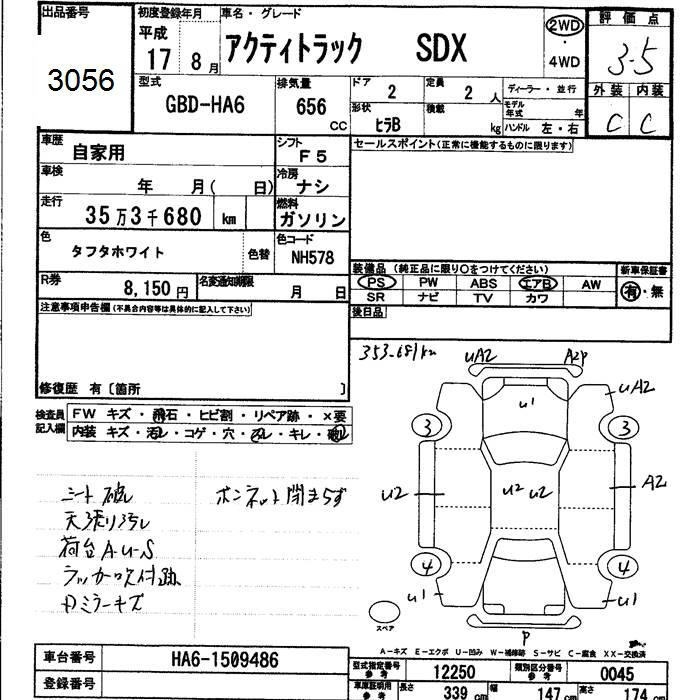 出品番号
3056
初度登録年月
平成
17 8月
車名・グレード
アクティトラック SDX
2WD
・
4WD
評価点
3.5
外装 内装
C C
型式
GBD-HA6
排気量
656
CC
ドア
2
定員
2 人
形状
ヒラB
積載
kg
ディーラー・並行
モデル年式 年
ハンドル 左・右
車歴
自家用
シフト
F5
セールスポイント(正常に機能するものに限ります)
車検
年 月( 日)
冷房
ナシ
走行
35万3千680 km
燃料
ガソリン
色
タフタホワイト
色替
色コード
NH578
R券
8,150円
名変通知期限
月 日
装備品 (純正品に限り○をつけてください)
PS PW ABS エアB AW
SR ナビ TV カワ
新車保証書
有・無
後日品
注意事項申告欄(不具合内容等は具体的に記入して下さい)
修復歴 有〔箇所 〕
検査員
記入欄
FW キズ・飛石・ヒビ割・リペア跡・×要
内装 キズ・汚レ・コゲ・穴・スレ・キレ・破レ
シート破レ
天張り汚レ
荷台A.U.S
ラッカー吹付跡
Dミラーキズ
ボンネット閉まらず
353.681km
UA2
A2P
UA2
U1
3
3
U2
U2 U2
A2
4
4
U1
U1
P
スペア
A-キズ E-エクボ U-凹み W-補修跡 S-サビ C-腐食 XX-交換済
車台番号
HA6-1509486
登録番号
型式指定番号
参考
12250
類別区分番号
参考
0045
車庫証明用
参考
長さ
339 cm
幅
147 cm
高さ
174 cm